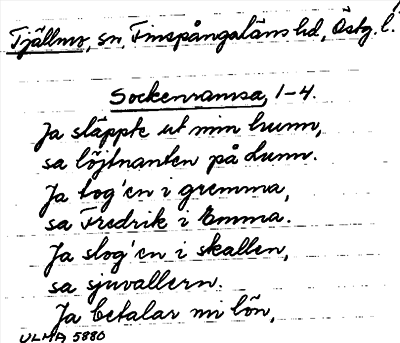 Tjällmo, sn, Finspångaläns hd, Östg. l.
Sockenramsa, 1-4.
Ja släppte ut min hunn,
sa löjtnanten på Lunn.
Ja tog'en i gremma,
sa Fredrik i Emma.
Ja slog'en i skallen,
sa sjuvallern.
Ja betalar mi lön,
ULMA 5880